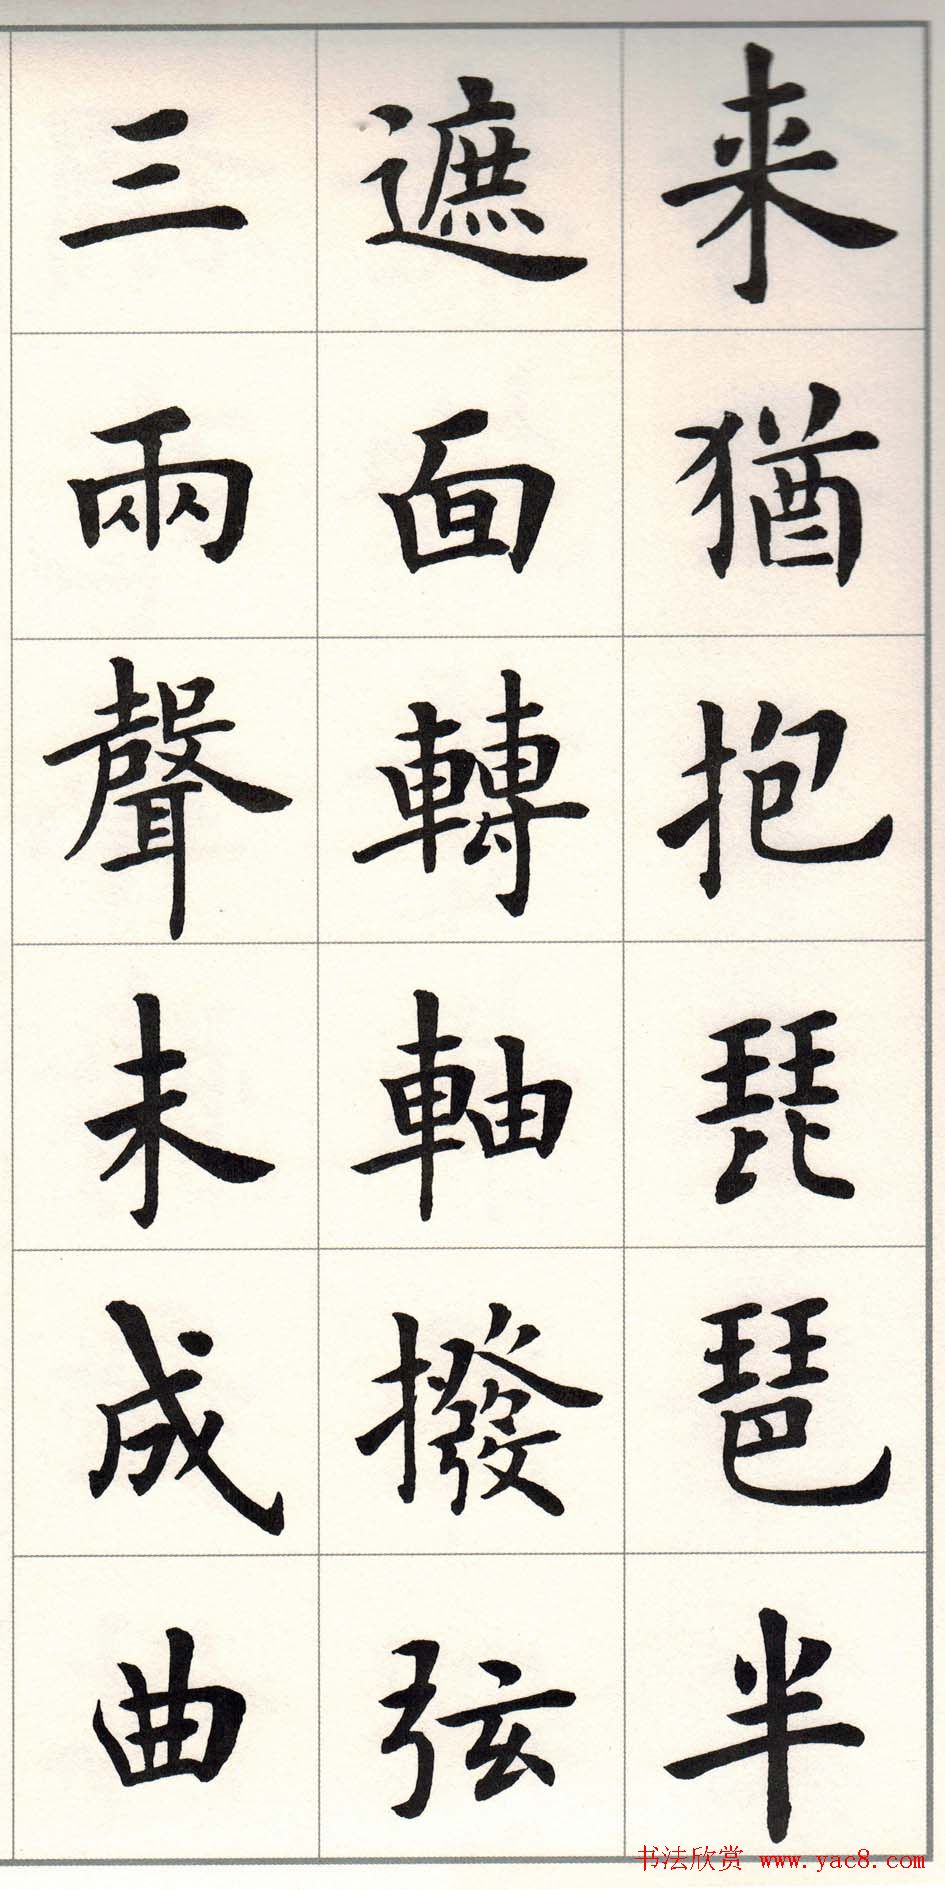 来猶抱琵琶半
遮面轉軸撥弦
三兩聲未成曲
书法欣赏 www.yac8.com